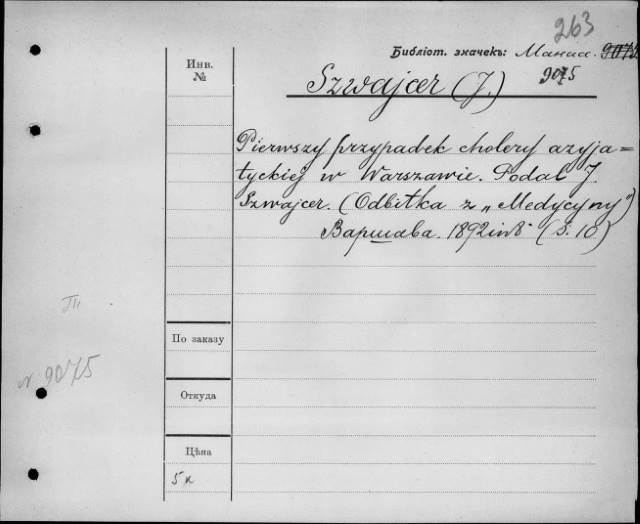 263
Библіот. значекъ: Манас. 9075
Инв.
№
Szwajcer (J.)
9075
Pierwszy przypadek cholery azyja-
tyckiej w Warszawie. Podał J.
Szwajcer. (Odbitka z „Medycyny")
Варшава. 1892 in 8° (s. 10)
По заказу
№ 9075
Откуда
Цѣна
5к